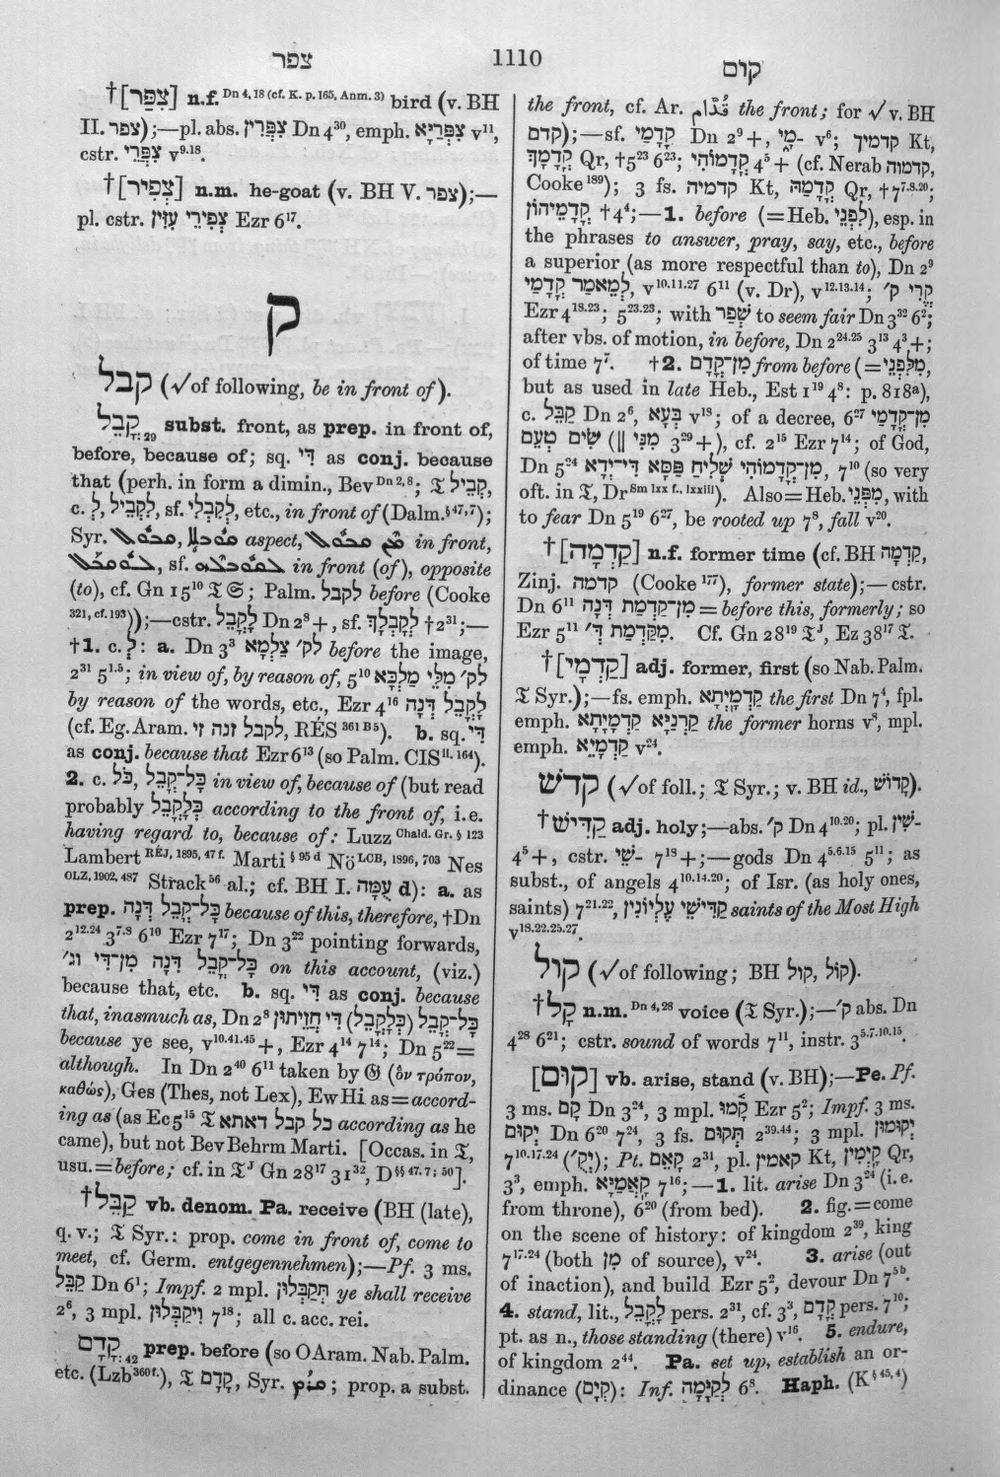 צפר
1110
קום
†[צִפַּר] n.f. Dn 4, 18 (cf. K. p. 165, Anm. 3) bird (v. BH
II. צפר);—pl. abs. צִפְּרִין Dn 4³⁰, emph. צִפְּרַיָּא v¹¹,
cstr. צִפְּרֵי v⁹·¹⁸.
†[צְפִיר] n.m. he-goat (v. BH V. צפר);—
pl. cstr. צְפִירֵי עִזִּין Ezr 6¹⁷.
ק
קבל (√of following, be in front of).
קֳבֵל₂₉ subst. front, as prep. in front of,
before, because of; sq. דִּי as conj. because
that (perh. in form a dimin., Bev Dn 2, 8; 𝔗 קְבֵיל,
c. לְ, לִקְבֵיל, sf. לְקִבְלִי, etc., in front of (Dalm. § 47, 7);
Syr. aspect, in front,
sf. in front (of), opposite
(to), cf. Gn 15¹⁰ 𝔗 𝔖; Palm. לקבל before (Cooke
321, cf. 193));—cstr. לָקֳבֵל Dn 2⁸+, sf. לְקָבְלָךְ †2³¹;—
†1. c. לְ: a. Dn 3³ לק׳ צַלְמָא before the image,
2³¹ 5¹·⁵; in view of, by reason of, 5¹⁰ לק׳ מִלֵּי מַלְכָּא
by reason of the words, etc., Ezr 4¹⁶ לָקֳבֵל דְּנָה
(cf. Eg. Aram. לקבל זנה זי, RÉS 361 B 5). b. sq. דִּי
as conj. because that Ezr 6¹³ (so Palm. CIS ii. 164).
2. c. כֹּל, כָּל־קֳבֵל in view of, because of (but read
probably כְּלָקֳבֵל according to the front of, i.e.
having regard to, because of: Luzz Chald. Gr. § 123
Lambert RÉJ, 1895, 47 f. Marti § 95 d Nö LCB, 1896, 703 Nes
OLZ, 1902, 487 Strack 56 al.; cf. BH I. עֻמָּה d): a. as
prep. כָּל־קֳבֵל דְּנָה because of this, therefore, †Dn
2¹²·²⁴ 3⁷·⁸ 6¹⁰ Ezr 7¹⁷; Dn 3²² pointing forwards,
כָּל־קֳבֵל דְּנָה מִן־דִּי וג׳ on this account, (viz.)
because that, etc. b. sq. דִּי as conj. because
that, inasmuch as, Dn 2⁸ כָּל־קֳבֵל (כְּלָקֳבֵל) דִּי חֲזֵיתוּן
because ye see, v¹⁰·⁴¹·⁴⁵+, Ezr 4¹⁴ 7¹⁴; Dn 5²²=
although. In Dn 2⁴⁰ 6¹¹ taken by 𝔊 (ὃν τρόπον,
καθώς), Ges (Thes, not Lex), Ew Hi as=accord-
ing as (as Ec 5¹⁵ 𝔗 כל קבל דאתא according as he
came), but not Bev Behrm Marti. [Occas. in 𝔗,
usu.=before; cf. in 𝔗ᴶ Gn 28¹⁷ 31³², D §§ 47. 7; 50].
†קַבֵּל vb. denom. Pa. receive (BH (late),
q.v.; 𝔗 Syr.: prop. come in front of, come to
meet, cf. Germ. entgegennehmen);—Pf. 3 ms.
קַבֵּל Dn 6¹; Impf. 2 mpl. תְּקַבְּלוּן ye shall receive
2⁶, 3 mpl. וִיקַבְּלוּן 7¹⁸; all c. acc. rei.
קֳדָם₄₂ prep. before (so OAram. Nab. Palm.
etc. (Lzb 360 f.), 𝔗 קֳדָם, Syr. ; prop. a subst.
the front, cf. Ar. قُدَّام the front; for √ v. BH
קדם);—sf. קָדָמַי Dn 2⁹+, -מָי v⁶; קדמיך Kt,
קָדָמָךְ Qr, †5²³ 6²³; קָדָמוֹהִי 4⁵+ (cf. Nerab קדמוה,
Cooke 189); 3 fs. קדמיה Kt, קָדָמַהּ Qr, †7⁷·⁸·²⁰;
קָדָמֵיהוֹן †4⁴;—1. before (=Heb. לִפְנֵי), esp. in
the phrases to answer, pray, say, etc., before
a superior (as more respectful than to), Dn 2⁹
לְמֵאמַר קָדָמַי, v¹⁰·¹¹·²⁷ 6¹¹ (v. Dr), v¹²·¹³·¹⁴; קֱרִי ק׳
Ezr 4¹⁸·²³; 5²³·²³; with שְׁפַר to seem fair Dn 3³² 6²;
after vbs. of motion, in before, Dn 2²⁴·²⁵ 3¹³ 4³+;
of time 7⁷. †2. מִן־קֳדָם from before (=מִלִּפְנֵי,
but as used in late Heb., Est 1¹⁹ 4⁸: p. 818ᵃ),
c. קַבֵּל Dn 2⁶, בְּעָא v¹⁸; of a decree, 6²⁷ מִן־קֳדָמַי
שִׂים טְעֵם (|| מִנִּי 3²⁹+), cf. 2¹⁵ Ezr 7¹⁴; of God,
Dn 5²⁴ מִן־קֳדָמוֹהִי שְׁלִיחַ פַּסָּא דִּי־יְדָא, 7¹⁰ (so very
oft. in 𝔗, Dr Sm lxx f., lxxiii). Also=Heb. מִפְּנֵי, with
to fear Dn 5¹⁹ 6²⁷, be rooted up 7⁸, fall v²⁰.
†[קַדְמָה] n.f. former time (cf. BH קַדְמָה,
Zinj. קדמה (Cooke 177), former state);—cstr.
Dn 6¹¹ מִן־קַדְמַת דְּנָה = before this, formerly; so
Ezr 5¹¹ מִקַּדְמַת דְּ׳. Cf. Gn 28¹⁹ 𝔗ᴶ, Ez 38¹⁷ 𝔗.
†[קַדְמָי] adj. former, first (so Nab. Palm.
𝔗 Syr.);—fs. emph. קַדְמָיְתָא the first Dn 7⁴, fpl.
emph. קַרְנַיָּא קַדְמָיָתָא the former horns v⁸, mpl.
emph. קַדְמָיֵא v²⁴.
קדשׁ (√of foll.; 𝔗 Syr.; v. BH id., קָדוֹשׁ).
†קַדִּישׁ adj. holy;—abs. ק׳ Dn 4¹⁰·²⁰; pl. -שִׁין
4⁵+, cstr. -שֵׁי 7¹⁸+;—gods Dn 4⁵·⁶·¹⁵ 5¹¹; as
subst., of angels 4¹⁰·¹⁴·²⁰; of Isr. (as holy ones,
saints) 7²¹·²², קַדִּישֵׁי עֶלְיוֹנִין saints of the Most High
v¹⁸·²²·²⁵·²⁷.
קול (√of following; BH קוֹל, קול).
†קָל n.m. Dn 4, 28 voice (𝔗 Syr.);—ק׳ abs. Dn
4²⁸ 6²¹; cstr. sound of words 7¹¹, instr. 3⁵·⁷·¹⁰·¹⁵.
[קוּם] vb. arise, stand (v. BH);—Pe. Pf.
3 ms. קָם Dn 3²⁴, 3 mpl. קָ֫מוּ Ezr 5²; Impf. 3 ms.
יְקוּם Dn 6²⁰ 7²⁴, 3 fs. תְּקוּם 2³⁹·⁴⁴; 3 mpl. יְקוּמוּן
7¹⁰·¹⁷·²⁴ (יְקֻ׳); Pt. קָאֵם 2³¹, pl. קאמין Kt, קָיְמִין Qr,
3³, emph. קָאֲמַיָּא 7¹⁶;—1. lit. arise Dn 3²⁴ (i.e.
from throne), 6²⁰ (from bed). 2. fig.=come
on the scene of history: of kingdom 2³⁹, king
7¹⁷·²⁴ (both מִן of source), v²⁴. 3. arise (out
of inaction), and build Ezr 5², devour Dn 7⁵ᵇ.
4. stand, lit., לָקֳבֵל pers. 2³¹, cf. 3³, קֳדָם pers. 7¹⁰;
pt. as n., those standing (there) v¹⁶. 5. endure,
of kingdom 2⁴⁴. Pa. set up, establish an or-
dinance (קְיָם): Inf. לְקַיָּמָה 6⁸. Haph. (K § 45, 4)